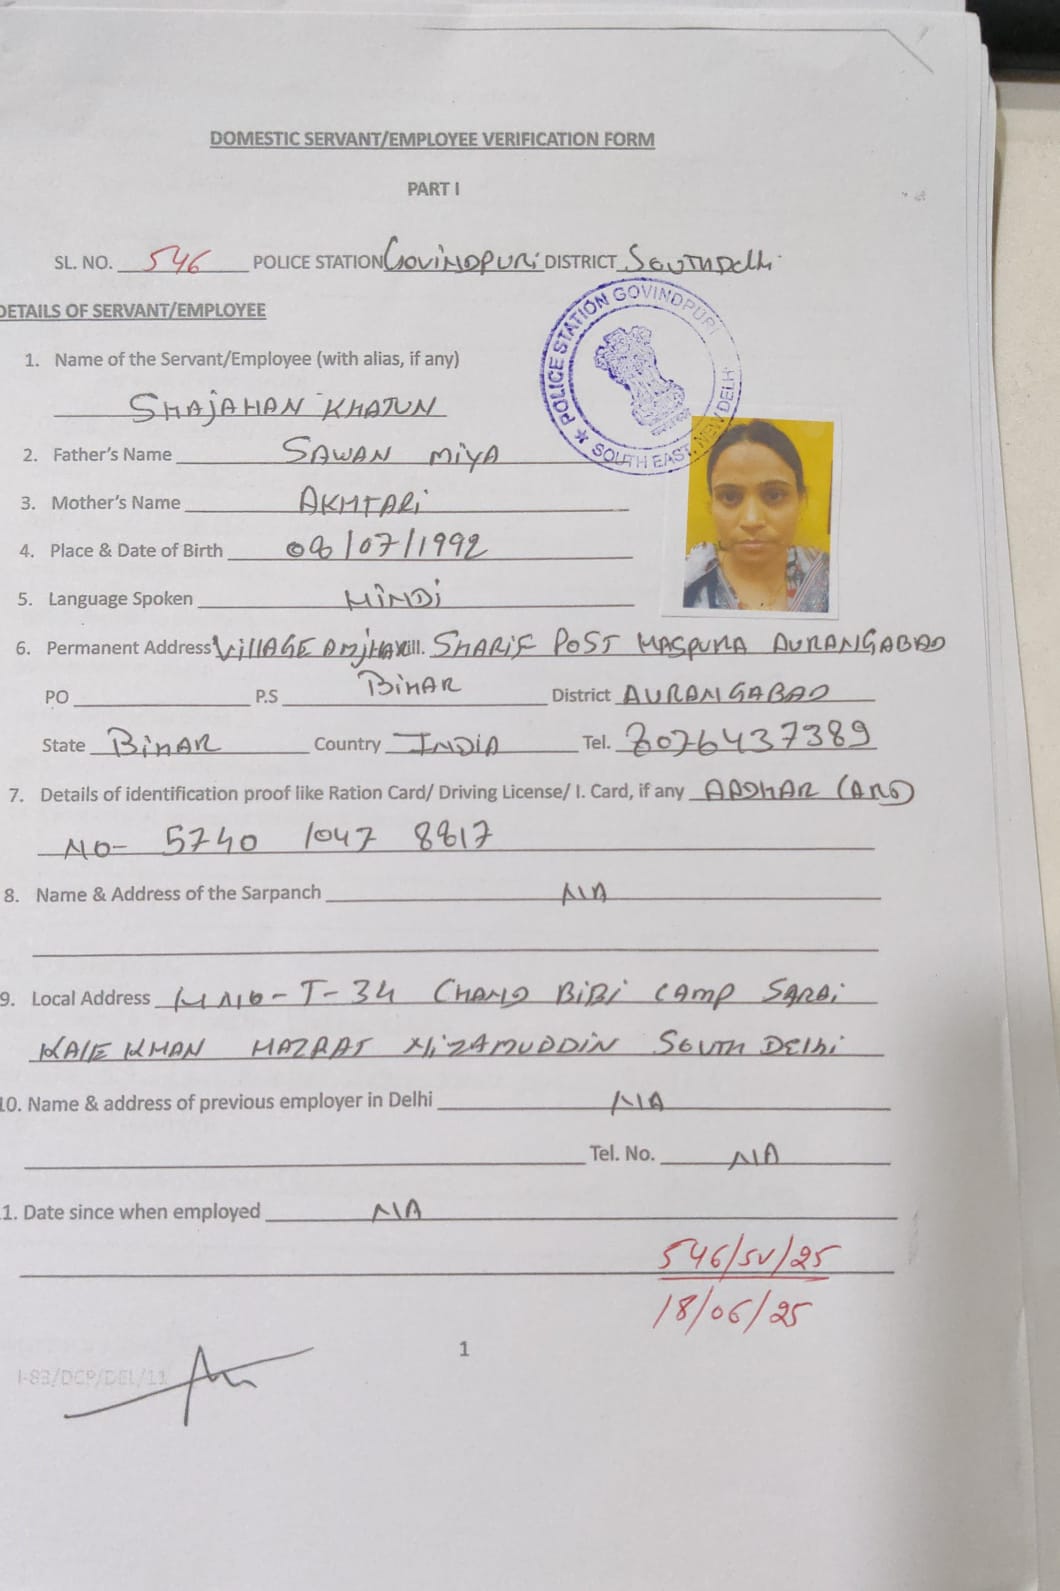 DOMESTIC SERVANT/EMPLOYEE VERIFICATION FORM
PART I
SL. NO. 546 POLICE STATION GOVINDPURI DISTRICT SOUTH Delhi
DETAILS OF SERVANT/EMPLOYEE
POLICE STATION GOVINDPURI
SOUTH EAST, NEW DELHI
1. Name of the Servant/Employee (with alias, if any)
SHAJAHAN KHATUN
2. Father's Name SAWAN MIYA
3. Mother's Name AKHTARI
4. Place & Date of Birth 06/07/1992
5. Language Spoken HINDI
6. Permanent Address VIllAGE AMJHAR Vill. SHARIF POST HASPURA AURANGABAD
BIHAR
PO P.S District AURANGABAD
State BIHAR Country INDIA Tel. 8076437389
7. Details of identification proof like Ration Card/ Driving License/ I. Card, if any AADHAR CARD
NO- 5740 1047 8817
8. Name & Address of the Sarpanch NIA
9. Local Address H NO- T-34 CHAND BIBI CAMP SARAI
KALE KHAN HAZRAT NIZAMUDDIN SOUTH DELhi
10. Name & address of previous employer in Delhi NIA
Tel. No. NIA
1. Date since when employed NIA
546/SV/25
18/06/25
1
I-83/DCP/DEL/11